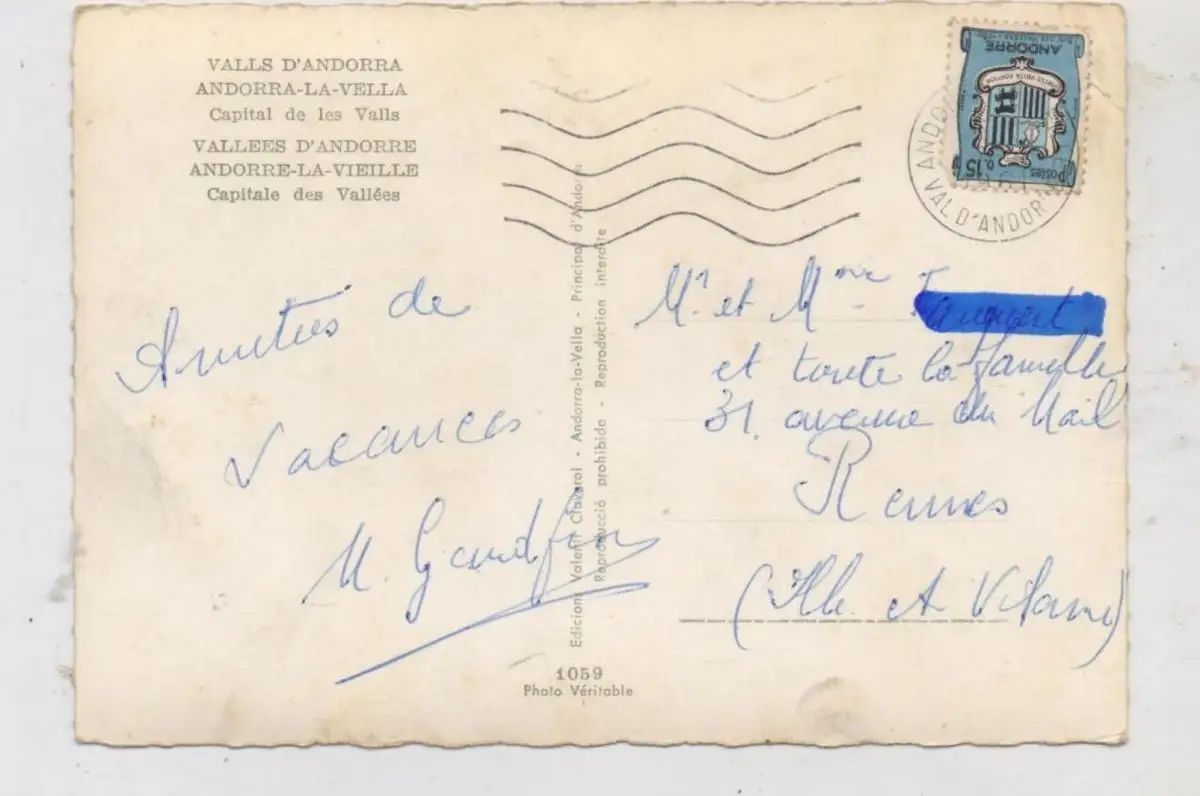 VALLS D'ANDORRA
ANDORRA-LA-VELLA
Capital de les Valls
VALLEES D'ANDORRE
ANDORRE-LA-VIEILLE
Capitale des Vallées
Amitiés de
vacances
M.
Edicions Valentí Claverol - Andorra-la-Vella - Principat d'Andorra
Reproducció prohibida - Reproduction interdite
1059
Photo Véritable
ANDORRE
Postes
0.15
VAL D'ANDOR
Mr. et Mme
et toute la famille
31. avenue du Mail
Rennes
(Ille et Vilaine)